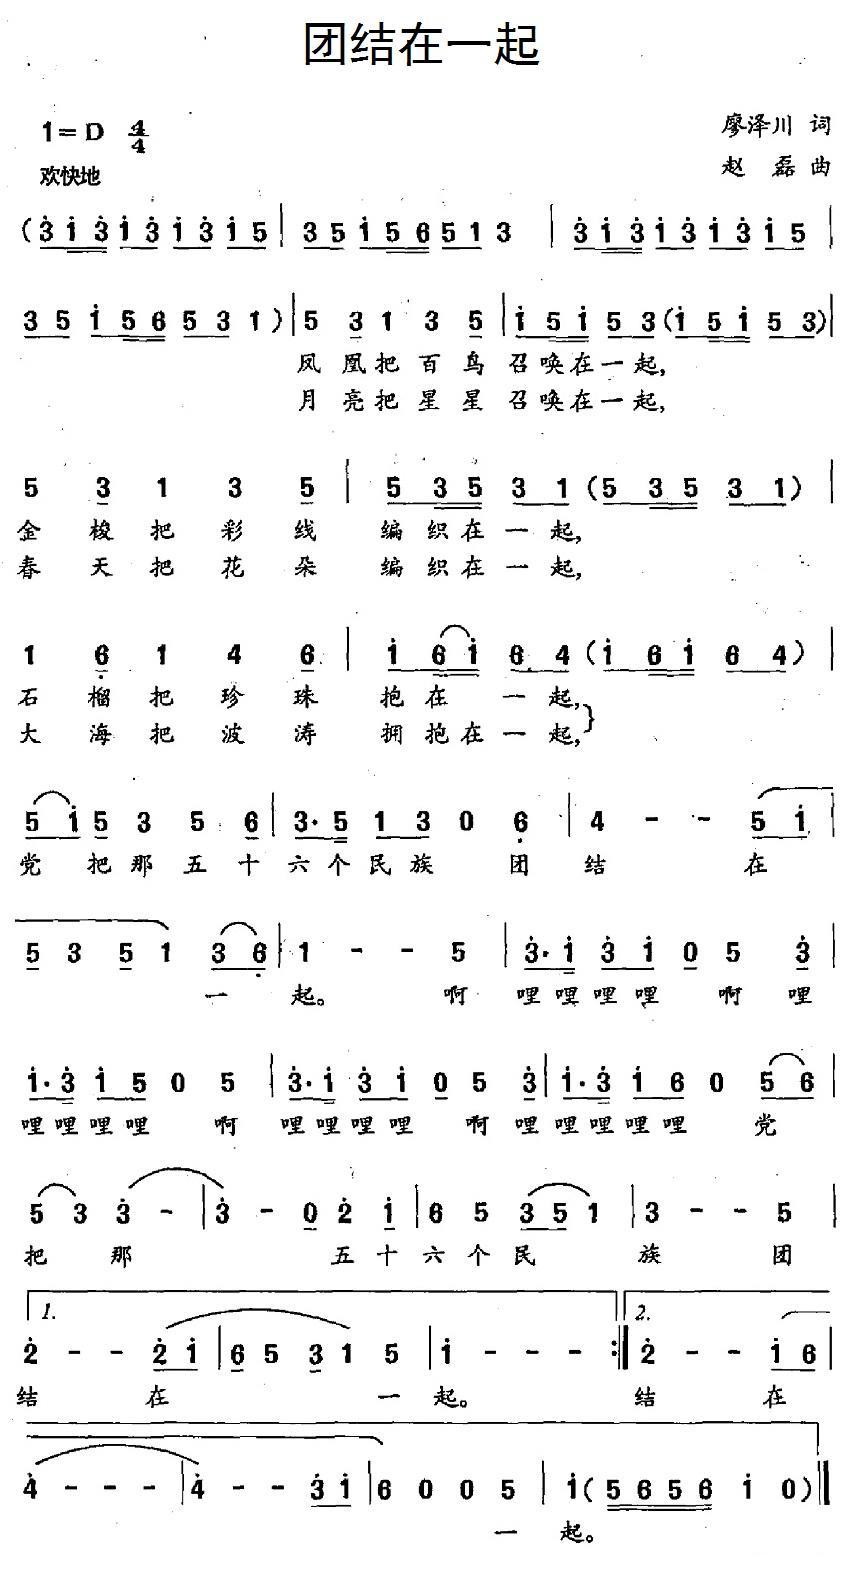 团结在一起
1=D 4/4
廖泽川 词
欢快地
赵 磊 曲
(3̇ i 3̇ i 3̇ i 3̇ i 5 | 3 5 i 5 6 5 1 3 | 3̇ i 3̇ i 3̇ i 3̇ i 5 |
3 5 i 5 6 5 3 1 ) | 5 3 1 3 5 | i 5 i 5 3 (i 5 i 5 3) |
凤凰把百鸟召唤在一起,
月亮把星星召唤在一起,
5 3 1 3 5 | 5 3 5 3 1 (5 3 5 3 1) |
金梭把彩线 编织在一起,
春天把花朵 编织在一起,
1 6̣ 1 4 6 | i 6 i 6 4 (i 6 i 6 4) |
石榴把珍珠 抱在 一起,
大海把波涛 拥抱在一起,
5 i 5 3 5 6 | 3· 5 1 3 0 6̣ | 4 - - 5 i |
党 把那五十六个民族 团 结 在
5 3 5 1 3 6̣ | 1 - - 5 | 3̇· i 3̇ i 0 5 3̇ |
一 起。 啊 哩哩哩哩 啊 哩
i· 3̇ i 5 0 5 | 3̇· i 3̇ i 0 5 3̇ | i· 3̇ i 6 0 5 6 |
哩哩哩哩 啊 哩哩哩哩 啊 哩哩哩哩哩 党
5 3 3̇ - | 3̇ - 0 2̇ i | 6 5 3 5 1 | 3 - - 5 |
把 那 五十六个民 族 团
1. 2.
2̇ - - 2̇ i | 6 5 3 1 5 | i - - - :| 2̇ - - i 6 |
结 在 一起。 结 在
4̇ - - - | 4̇ - - 3̇ i | 6 0 0 5 | i ( 5 6 5 6 i 0 ) |
一 起。